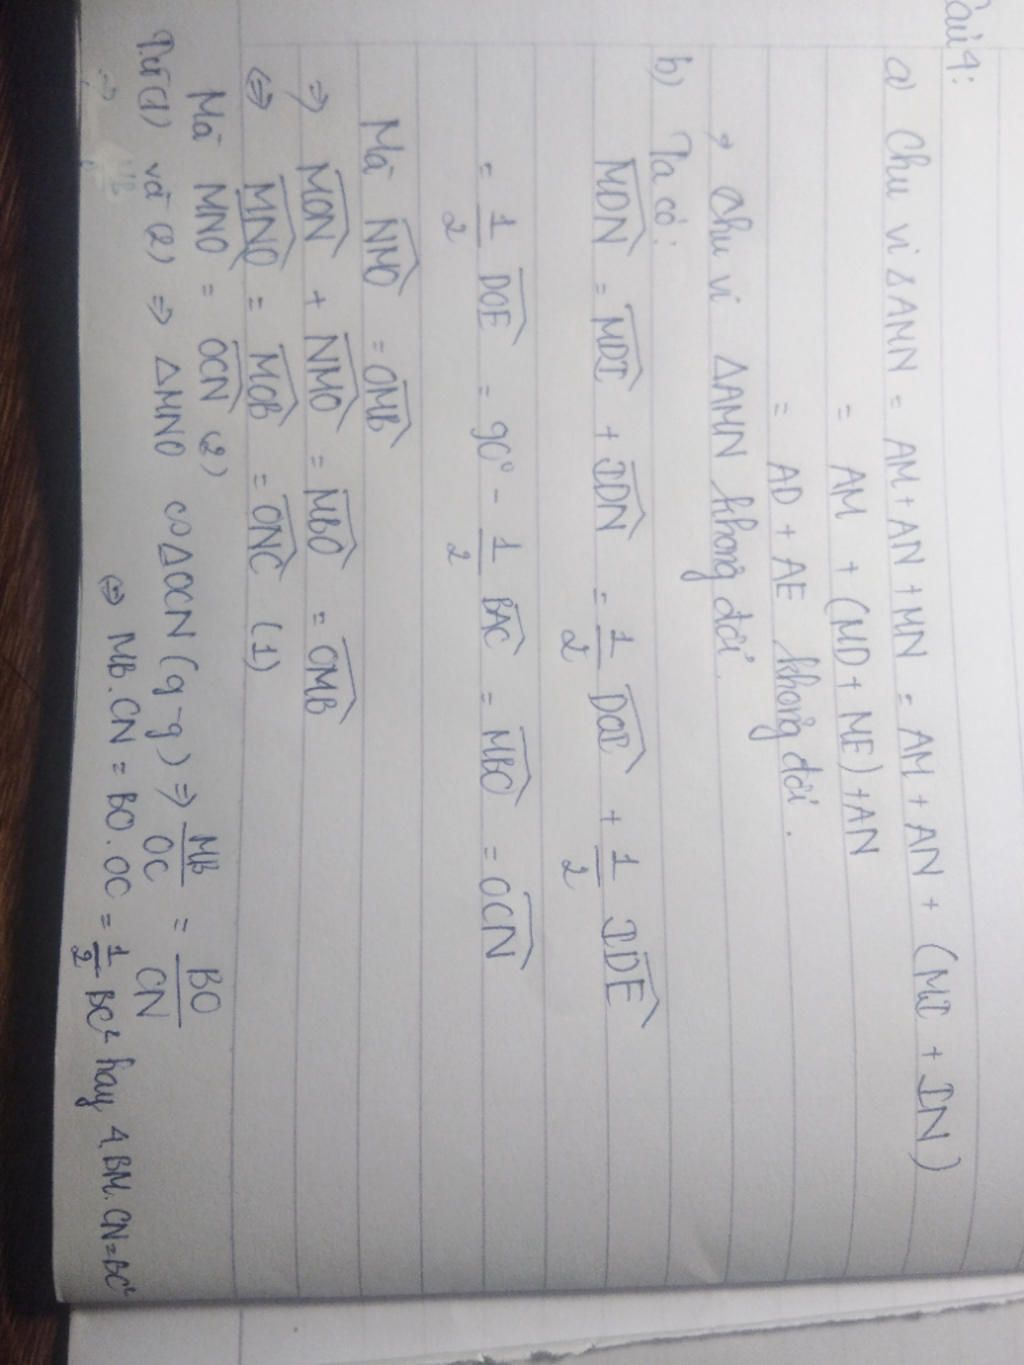 Câu 4:
a) Chu vi ΔAMN = AM + AN + MN = AM + AN + (MI + IN)
= AM + (MD + NE) + AN
= AD + AE không đổi.
→ Chu vi ΔAMN không đổi.
b) Ta có:
MON = MOI + ION = 1/2 DOI + 1/2 IOE
= 1/2 DOE = 90° - 1/2 BAC = MBO = OCN
Mà NMO = OMB
⇒ MON + NMO = MBO = OMB
⇔ MNO = MOB = ONC (1)
Mà MNO = OCN (2)
Từ (1) và (2) ⇒ ΔMNO ∽ ΔOCN (g-g) ⇒ MB/OC = BO/CN
⇔ MB.CN = BO.OC = 1/2 BC² hay 4.BM.CN=BC²